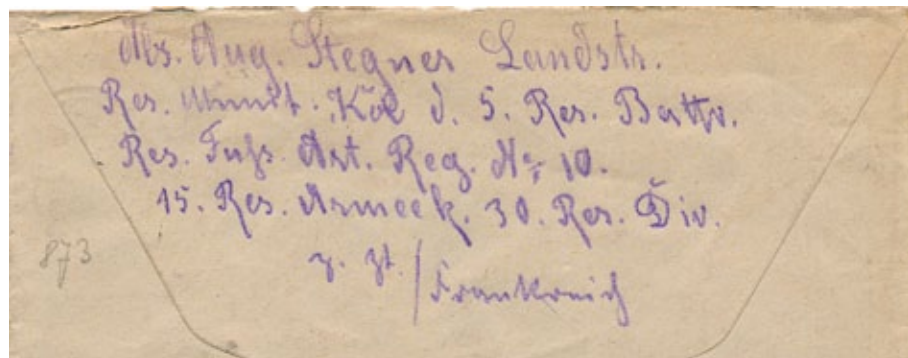 Abs. Aug. Stegner Landstr.
Res. Munit. Kol. d. 5. Res. Battr.
Res. Fußs. Art. Reg. No. 10.
15. Res. Armeek. 30. Res. Div.
873
z. Zt. / Frankreich